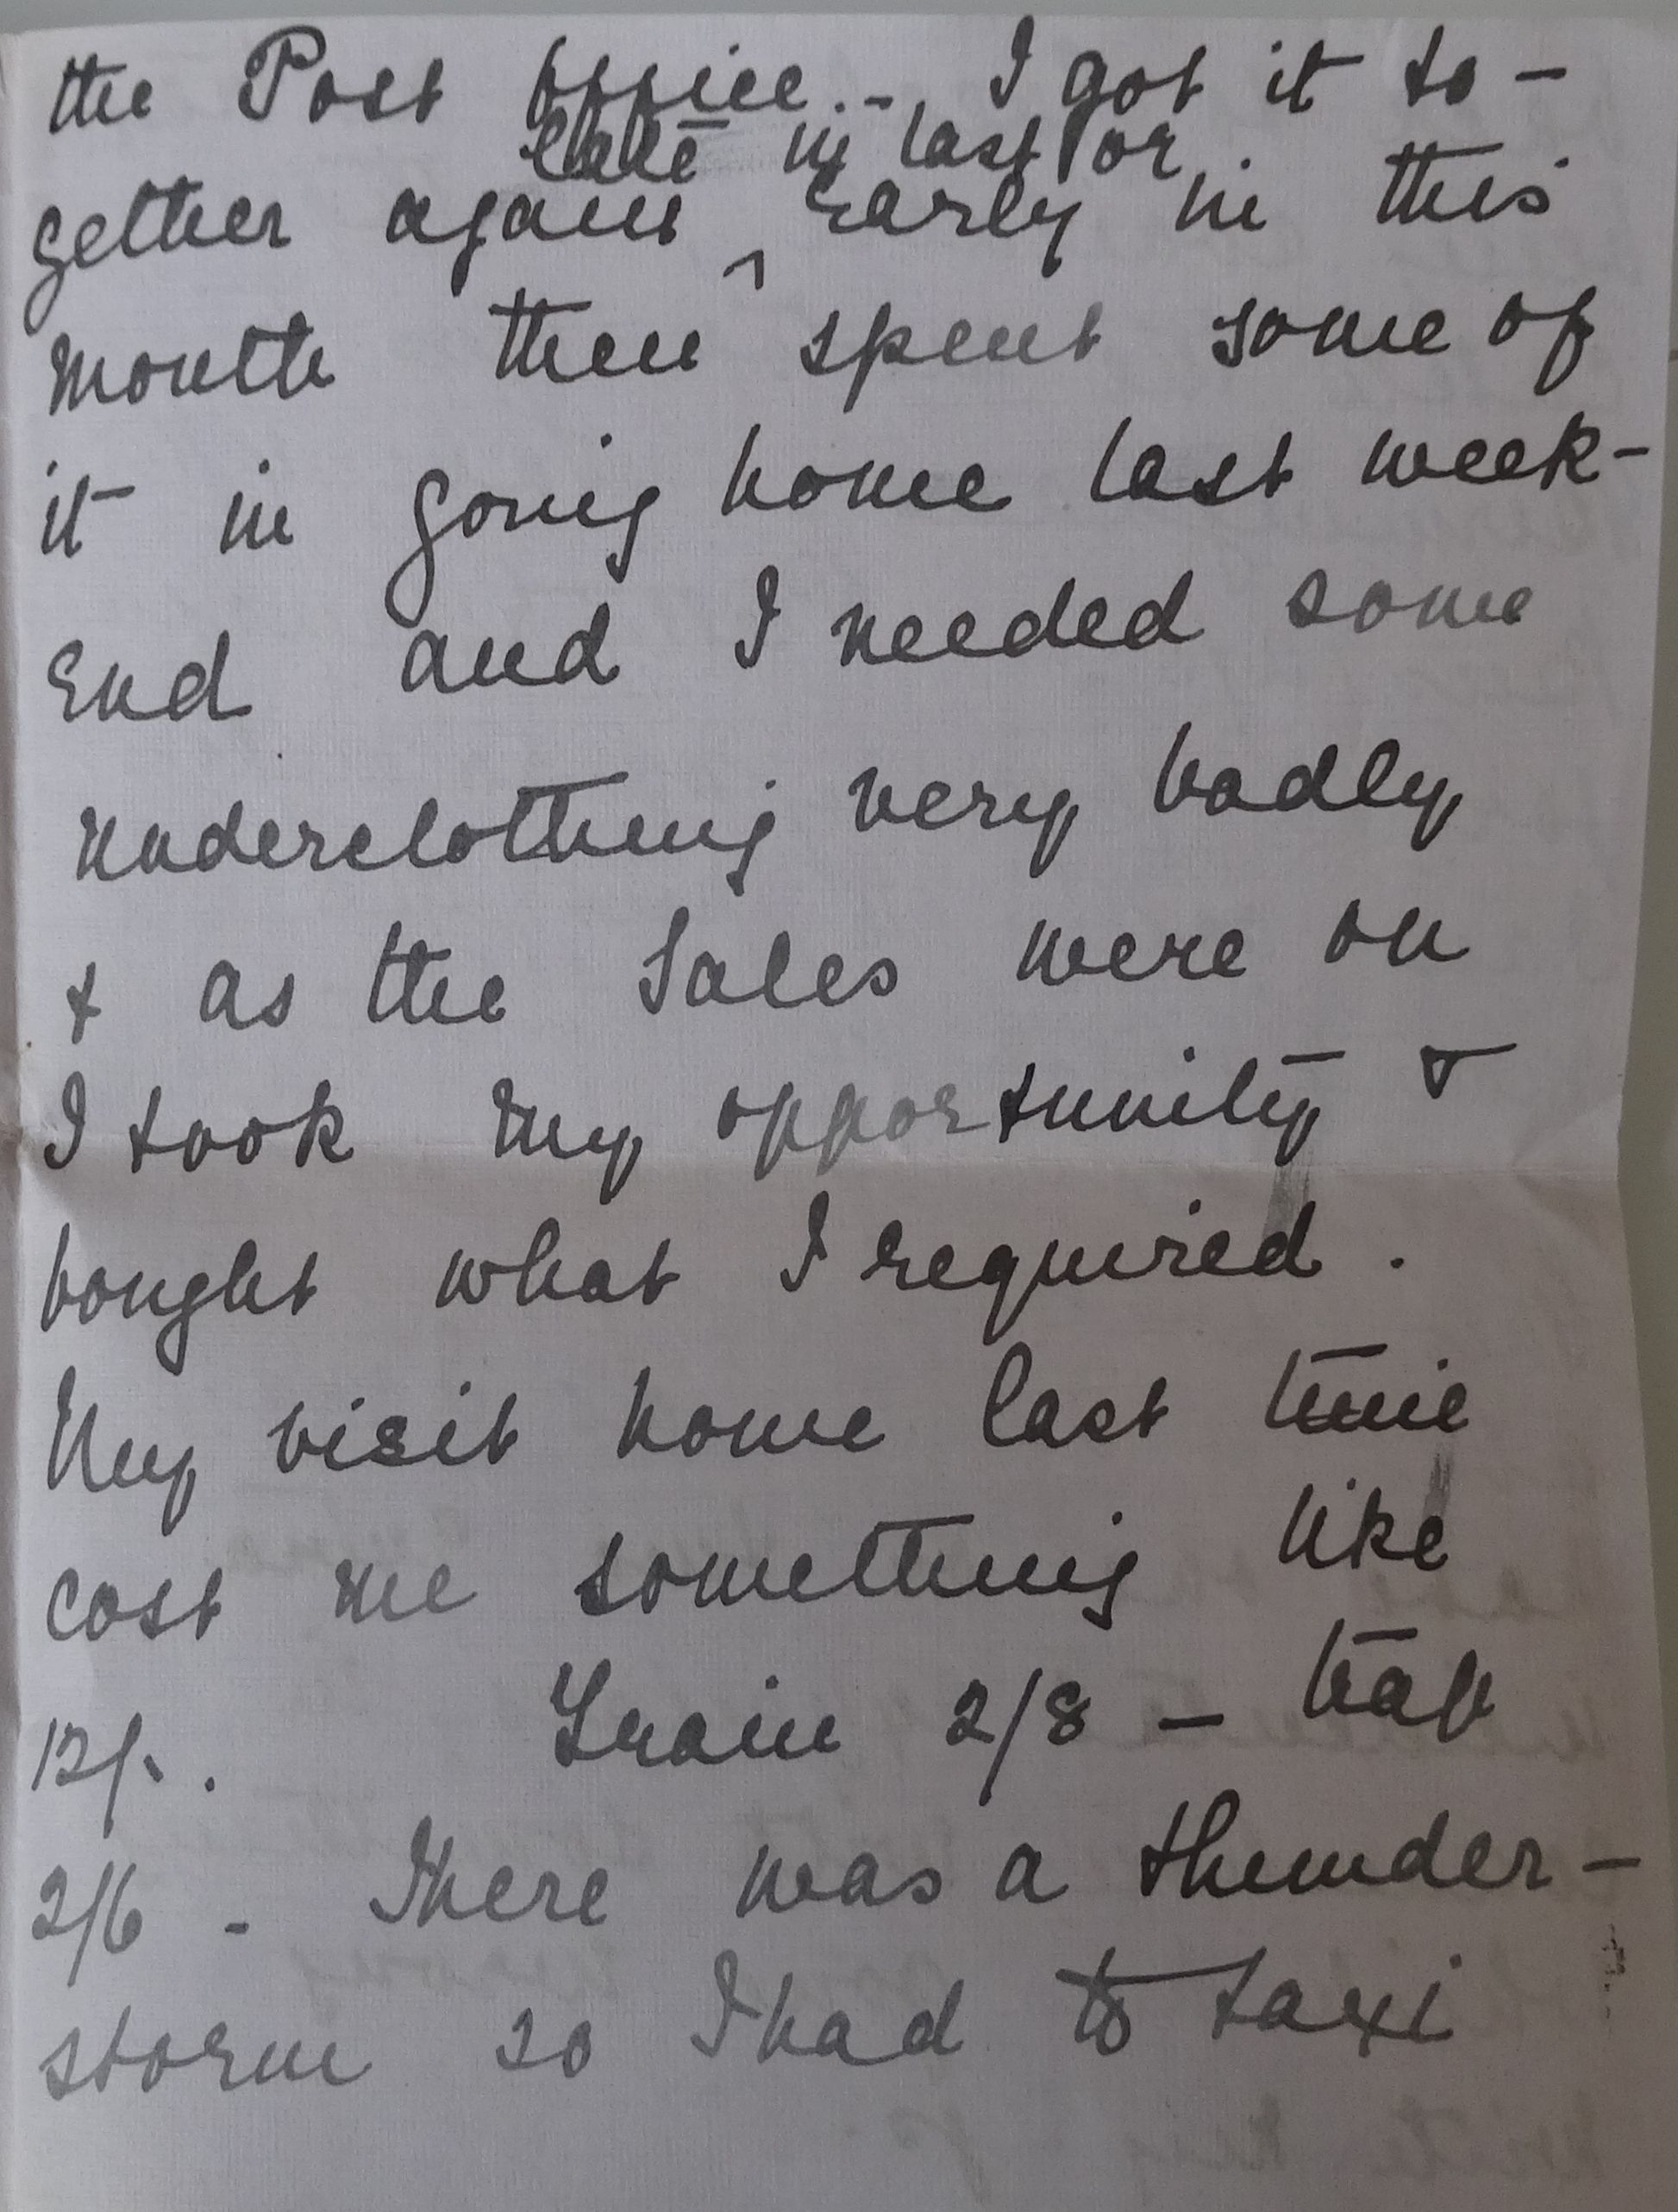 the Post Office... I got it to-
late in last or
gether again ^ Early in this
month then spent some of
it in going home last week-
End and I needed some
underclothing very badly
& as the Sales were on
I took my opportunity &
bought what I required.
My visit home last time
cost me something like
12/-. Train 2/8 - trap
2/6 - There was a thunder-
storm so I had to taxi